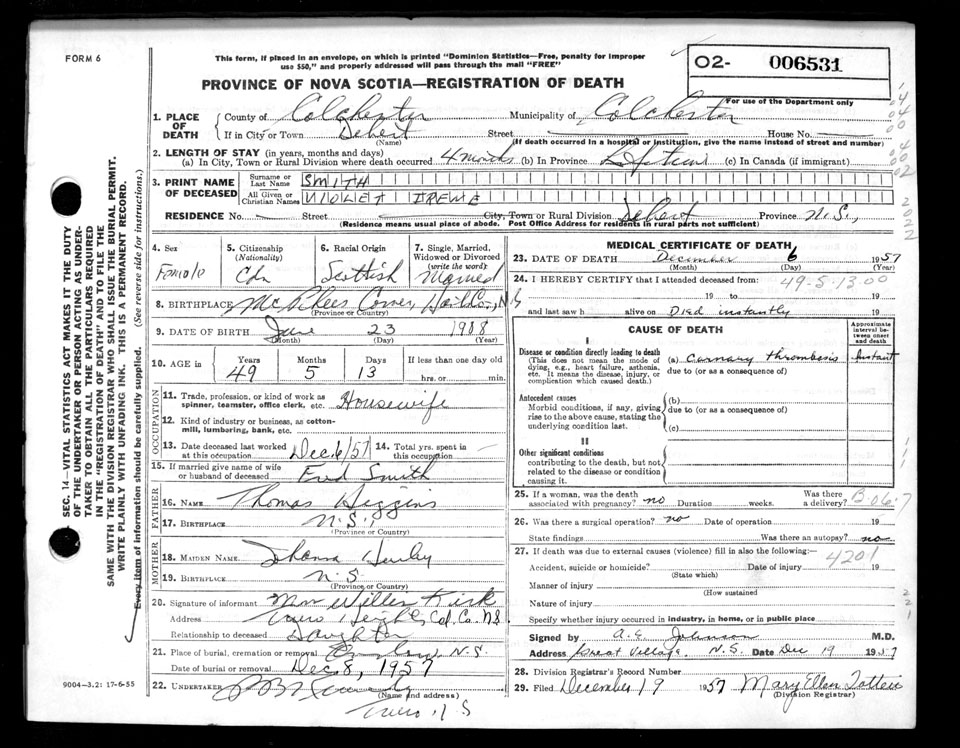 FORM 6
This form, if placed in an envelope, on which is printed "Dominion Statistics—Free, penalty for improper
use $50," and properly addressed will pass through the mail "FREE"
O2- 006531
PROVINCE OF NOVA SCOTIA—REGISTRATION OF DEATH
For use of the Department only
1. PLACE OF DEATH
County of Colchester Municipality of Colchester
If in City or Town Debert Street House No.
(Name) (If death occurred in a hospital or institution, give the name instead of street and number)
2. LENGTH OF STAY (in years, months and days)
(a) In City, Town or Rural Division where death occurred 4 months (b) In Province Lifetime (c) In Canada (if immigrant)
3. PRINT NAME OF DECEASED
Surname or Last Name SMITH
All Given or Christian Names VIOLET IRENE
RESIDENCE No. Street City, Town or Rural Division Debert Province N.S.,
(Residence means usual place of abode. Post Office Address for residents in rural parts not sufficient)
SEC. 14—VITAL STATISTICS ACT MAKES IT THE DUTY
OF THE UNDERTAKER OR PERSON ACTING AS UNDER-
TAKER TO OBTAIN ALL THE PARTICULARS REQUIRED
IN THE "REGISTRATION OF DEATH" AND TO FILE THE
SAME WITH THE DIVISION REGISTRAR WHO SHALL ISSUE THE BURIAL PERMIT.
WRITE PLAINLY WITH UNFADING INK. THIS IS A PERMANENT RECORD.
Every item of information should be carefully supplied. (See reverse side for instructions.)
4. Sex Female
5. Citizenship (Nationality) Cdn
6. Racial Origin Scottish
7. Single, Married, Widowed or Divorced (write the word) Married
8. BIRTHPLACE Corner, N.S
(Province or Country)
9. DATE OF BIRTH June 23 1908
(Month) (Day) (Year)
10. AGE in Years 49 Months 5 Days 13 If less than one day old hrs. or min.
OCCUPATION
11. Trade, profession, or kind of work as spinner, teamster, office clerk, etc. Housewife
12. Kind of industry or business, as cotton-mill, lumbering, bank, etc.
13. Date deceased last worked at this occupation Dec. 6/57 14. Total yrs. spent in this occupation
15. If married give name of wife or husband of deceased Fred Smith
FATHER
16. NAME Thomas Heggins
17. BIRTHPLACE N.S.
(Province or Country)
MOTHER
18. MAIDEN NAME Johanna
19. BIRTHPLACE N.S
(Province or Country)
20. Signature of informant Mrs Willis Kirk
Address Truro Heights Col. Co. N.S.
Relationship to deceased Daughter
21. Place of burial, cremation or removal N.S.
Date of burial or removal Dec. 8, 1957
22. UNDERTAKER
(Name and address)
Truro N S
9004—3.2: 17-6-55
MEDICAL CERTIFICATE OF DEATH
23. DATE OF DEATH December 6 1957
(Month) (Day) (Year)
24. I HEREBY CERTIFY that I attended deceased from:
49-5-13.00
19 to 19
and last saw h alive on Died instantly 19
CAUSE OF DEATH
Approximate interval between onset and death
I
Disease or condition directly leading to death
(This does not mean the mode of dying, e.g., heart failure, asthenia, etc. It means the disease, injury, or complication which caused death.)
(a) Coronary thrombosis Instant
due to (or as a consequence of)
Antecedent causes
Morbid conditions, if any, giving rise to the above cause, stating the underlying condition last.
(b)
due to (or as a consequence of)
(c)
II
Other significant conditions
contributing to the death, but not related to the disease or condition causing it.
25. If a woman, was the death associated with pregnancy? no Duration weeks. Was there a delivery?
26. Was there a surgical operation? no Date of operation 19
State findings Was there an autopsy? no
27. If death was due to external causes (violence) fill in also the following:— 4201
Accident, suicide or homicide? Date of injury 19
(State which)
Manner of injury
(How sustained
Nature of injury
Specify whether injury occurred in industry, in home, or in public place
Signed by A. E. Johnson M.D.
Address Great Village, N.S. Date Dec 19 1957
28. Division Registrar's Record Number
29. Filed December 19 1957 Mary Ellen Totten
(Division Registrar)